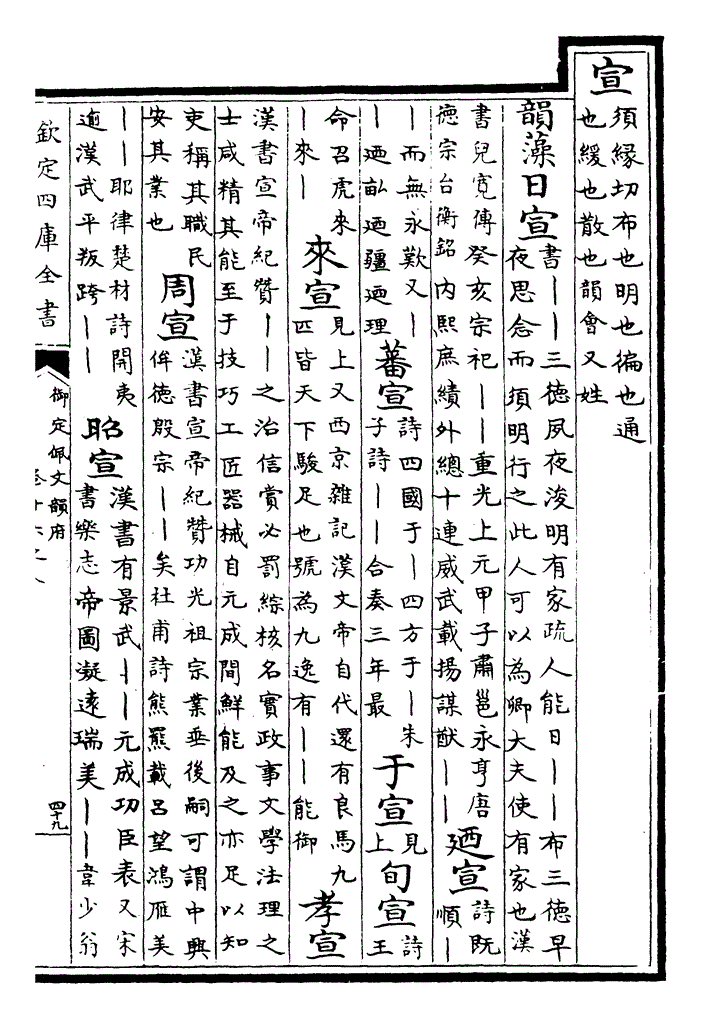 宣
須緣切布也明也徧也通
也緩也散也韻會又姓
韻藻日宣
書丨丨三德夙夜浚明有家疏人能日丨丨布三德早
夜思念而須明行之此人可以為卿大夫使有家也漢
書兒寬傳癸亥宗祀丨丨重光上元甲子肅邕永亨唐
德宗台衡銘內熙庶績外總十連威武載揚謀猷丨丨
廼宣
詩既
順丨
丨而無永歎又丨
丨廼畝廼疆廼理
蕃宣
詩四國于丨四方于丨朱
子詩丨丨合奏三年最
于宣
見
上
旬宣
詩
王
命召虎來
丨來丨
來宣
見上又西京雜記漢文帝自代還有良馬九
匹皆天下駿足也號為九逸有丨丨能御
孝宣
漢書宣帝紀贊丨丨之治信賞必罰綜核名實政事文學法理之
士咸精其能至于技巧工匠器械自元成間鮮能及之亦足以知
吏稱其職民
安其業也
周宣
漢書宣帝紀贊功光祖宗業垂後嗣可謂中興
侔德殷宗丨丨矣杜甫詩熊羆載呂望鴻雁美
丨丨耶律楚材詩開夷
逾漢武平叛跨丨丨
昭宣
漢書有景武丨丨元成功臣表又宋
書樂志帝圖凝遠瑞美丨丨韋少翁
欽定四庫全書
御定佩文韻府
卷十六之八
四十九